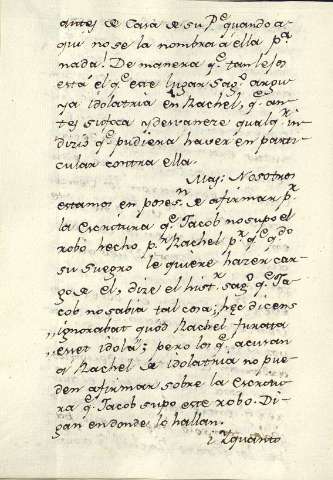 antes de Casa de su P.e quando a-
qui no se la nombra à ella p.a
nada! De manera q.e tan lejos
està el q.e este lugar Sag.o arguy-
ya idolatria en Rachel, q.e an-
tes sufoca y desvanece qualq.r in-
dizio q.e pudiera haver en parti-
cular contra ella.
Mas: Nosotros
estamos en poses.n de afirmar p.r
la Escritura q.e Jacob no supo el
robo hecho p.r Rachel p.r q.e q.do
su suegro le quiere hazer car-
go de el, dize el hist.r sag.o q.e Ja-
cob no sabia tal cosa; hęc dicens
„ignorabat quòd Rachel furata
„esset idola; pero los q.e acusan
à Rachel de idolatria no pue-
den afirmar sobre la Escritu-
ra q.e Jacob supo este robo. Di-
gan en donde lo hallan.
quanto